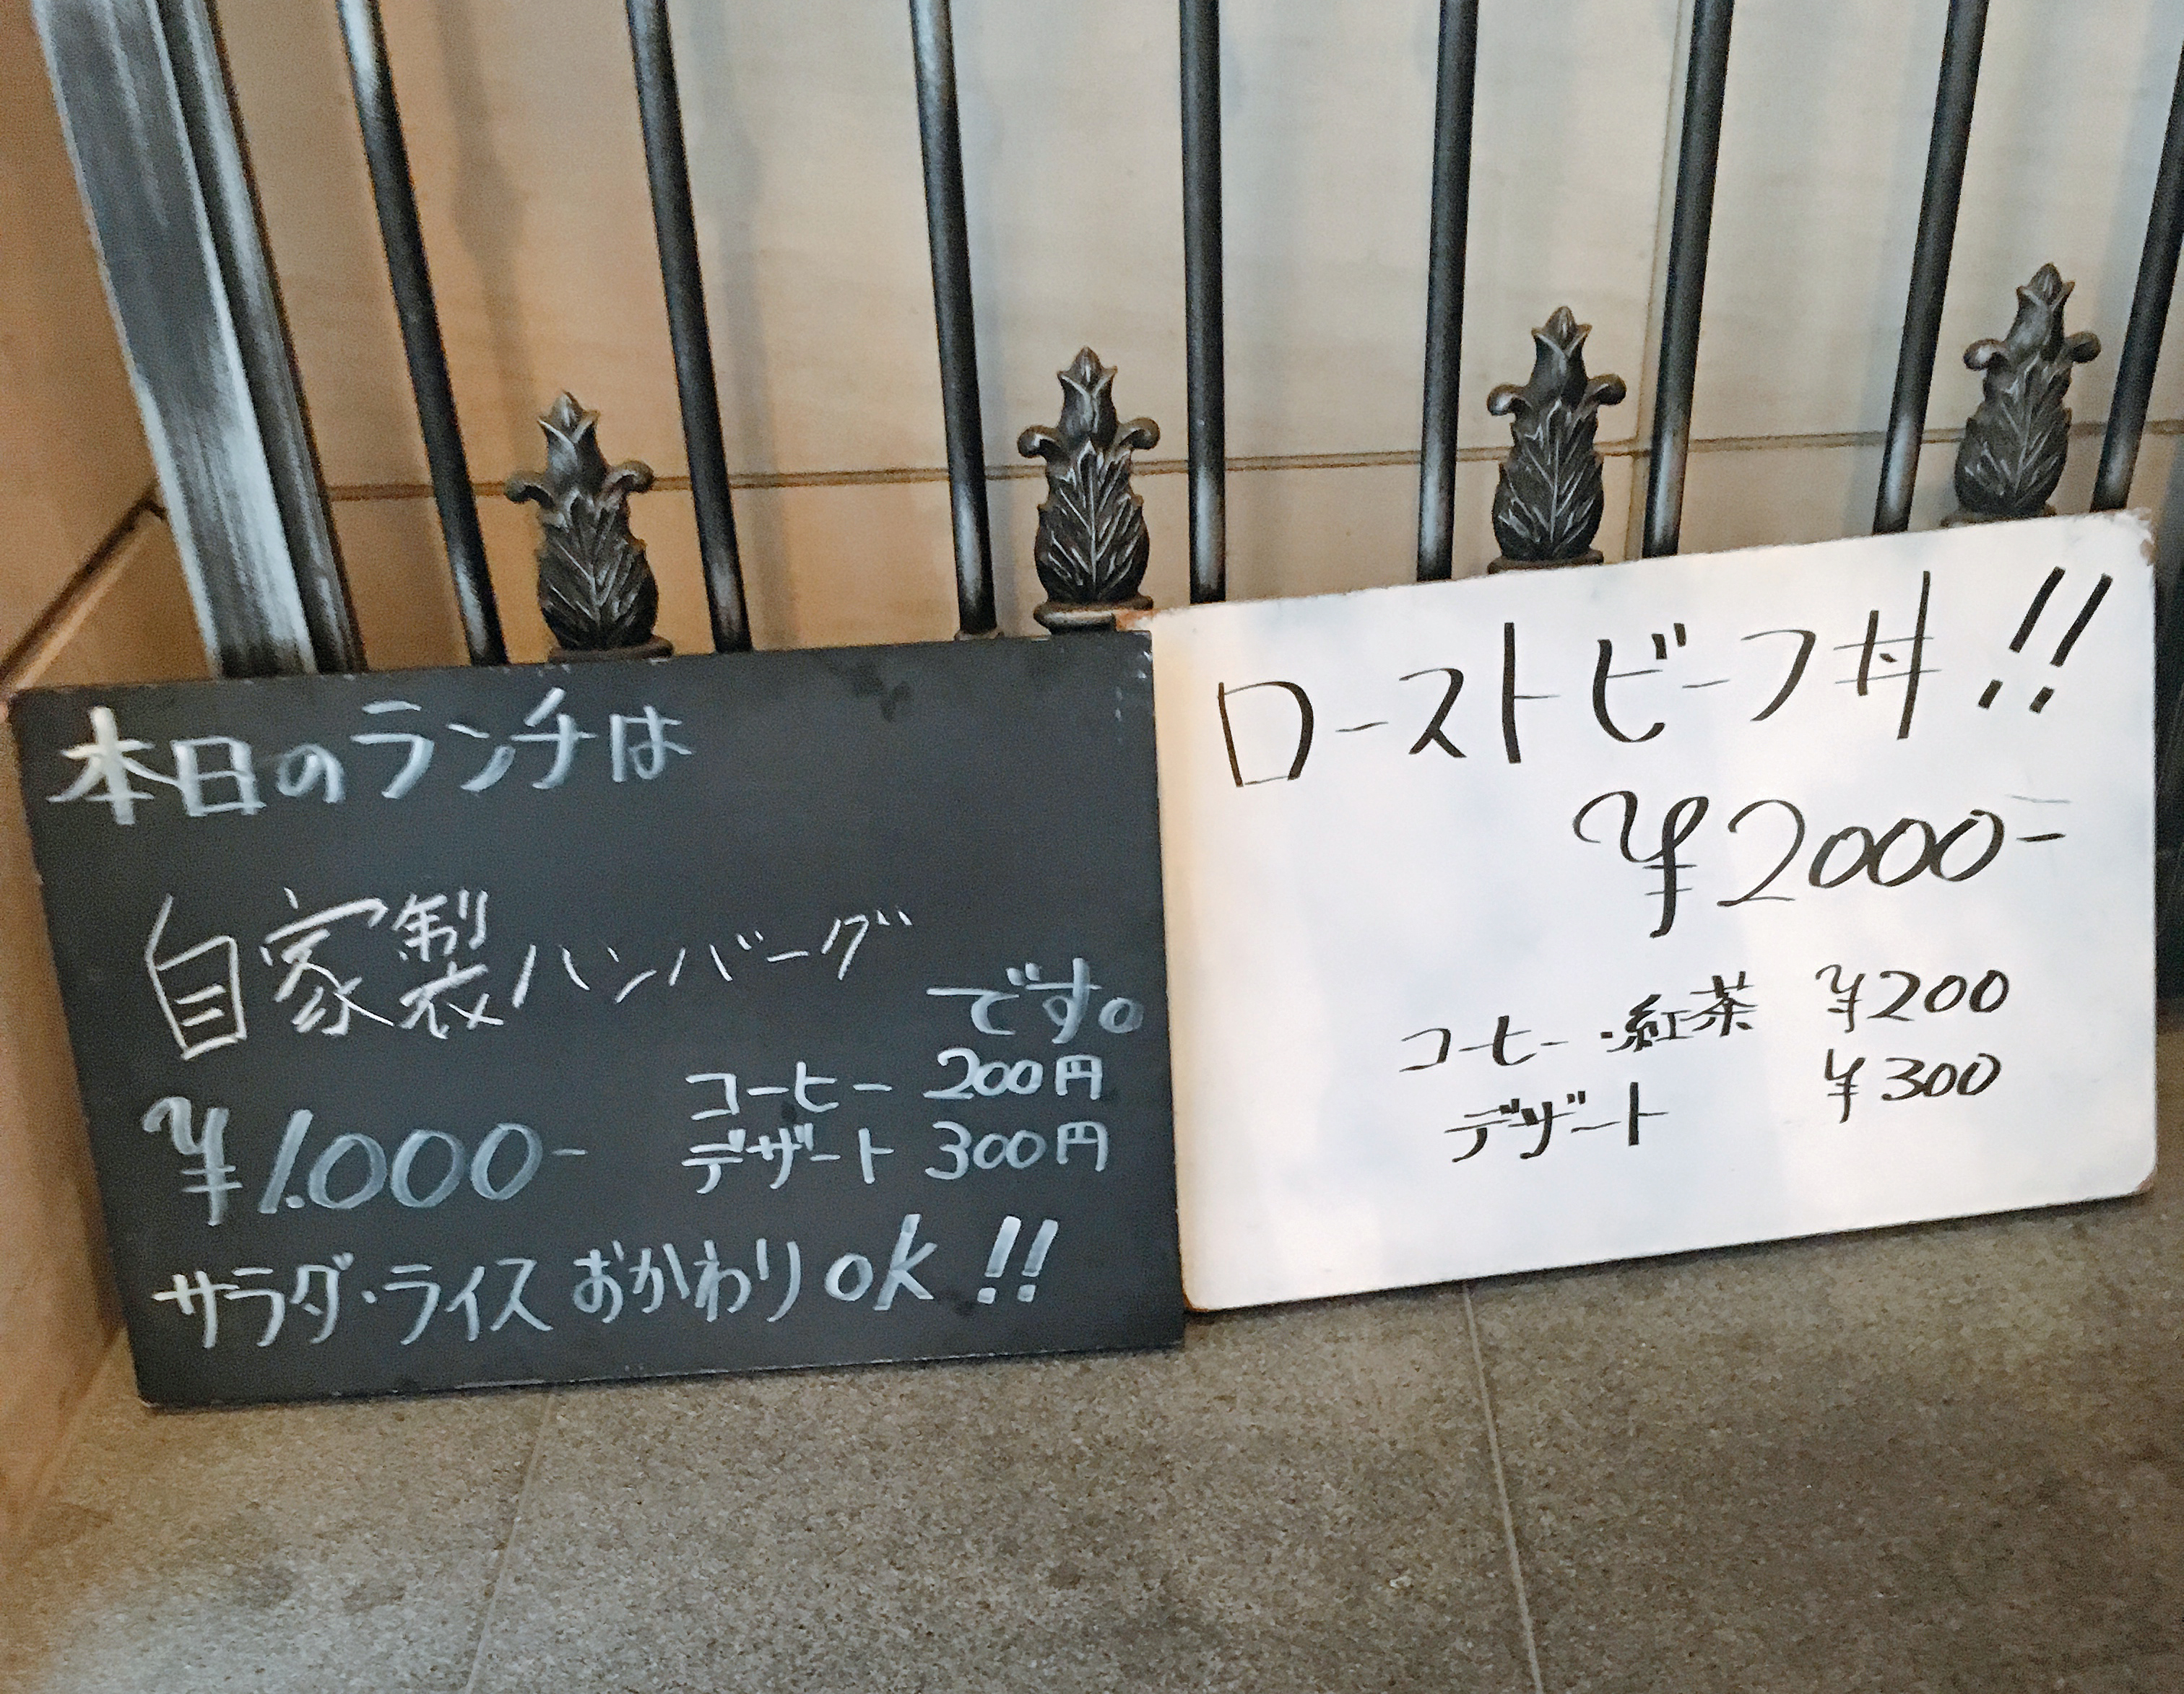 本日のランチは
自家製ハンバーグ
です。
¥1.000-
コーヒー 200円
デザート 300円
サラダ・ライス おかわり ok !!
ローストビーフ丼 !!
¥2000-
コーヒー・紅茶 ¥200
デザート ¥300